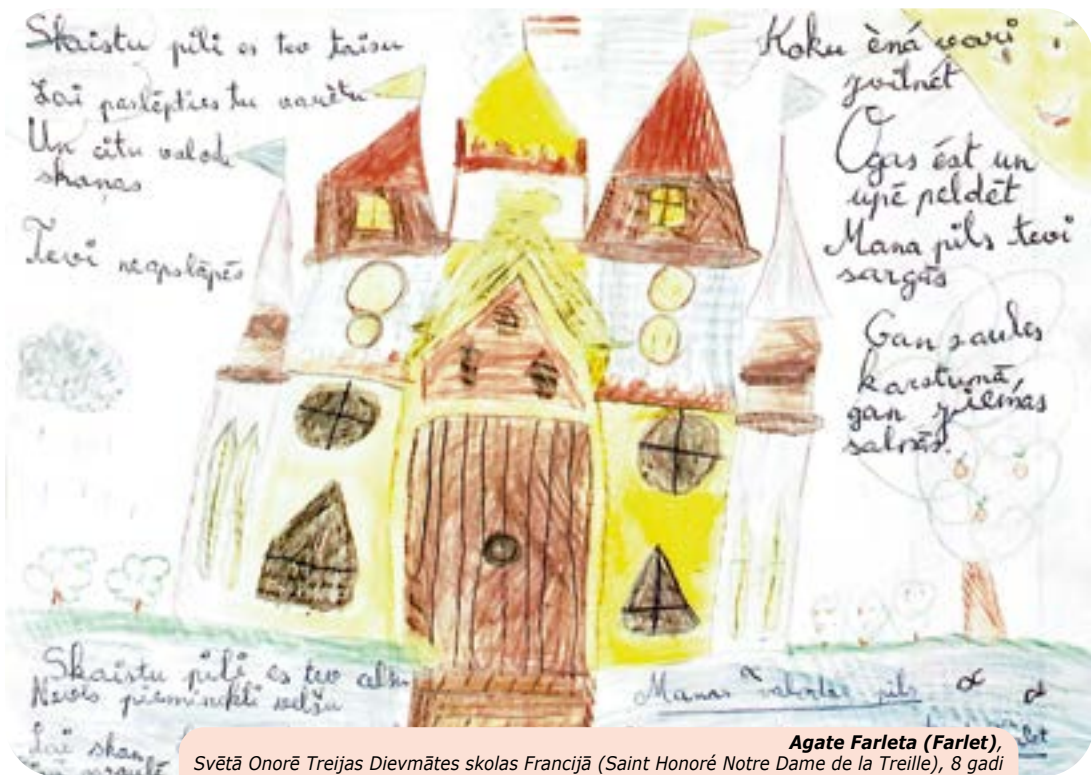 Skaistu pili es tev taisu
Lai paslēpties tu varētu
Un citu valodu
skaņas
Tevi neapslāpēs
Koku ēnā vari
zvilnēt
Ogas ēst un
upē peldēt
Mana pils tevi
sargās
Gan saules
karstumā,
gan ziemas
salnās.
Skaistu pili es tev celšu
Nevis pieminekli velšu
Lai skan
Manas valodas pils
Agate Farleta (Farlet),
Svētā Onorē Treijas Dievmātes skolas Francijā (Saint Honoré Notre Dame de la Treille), 8 gadi